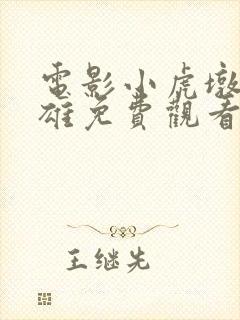 電影小虎墩
雄免費觀看
王继先